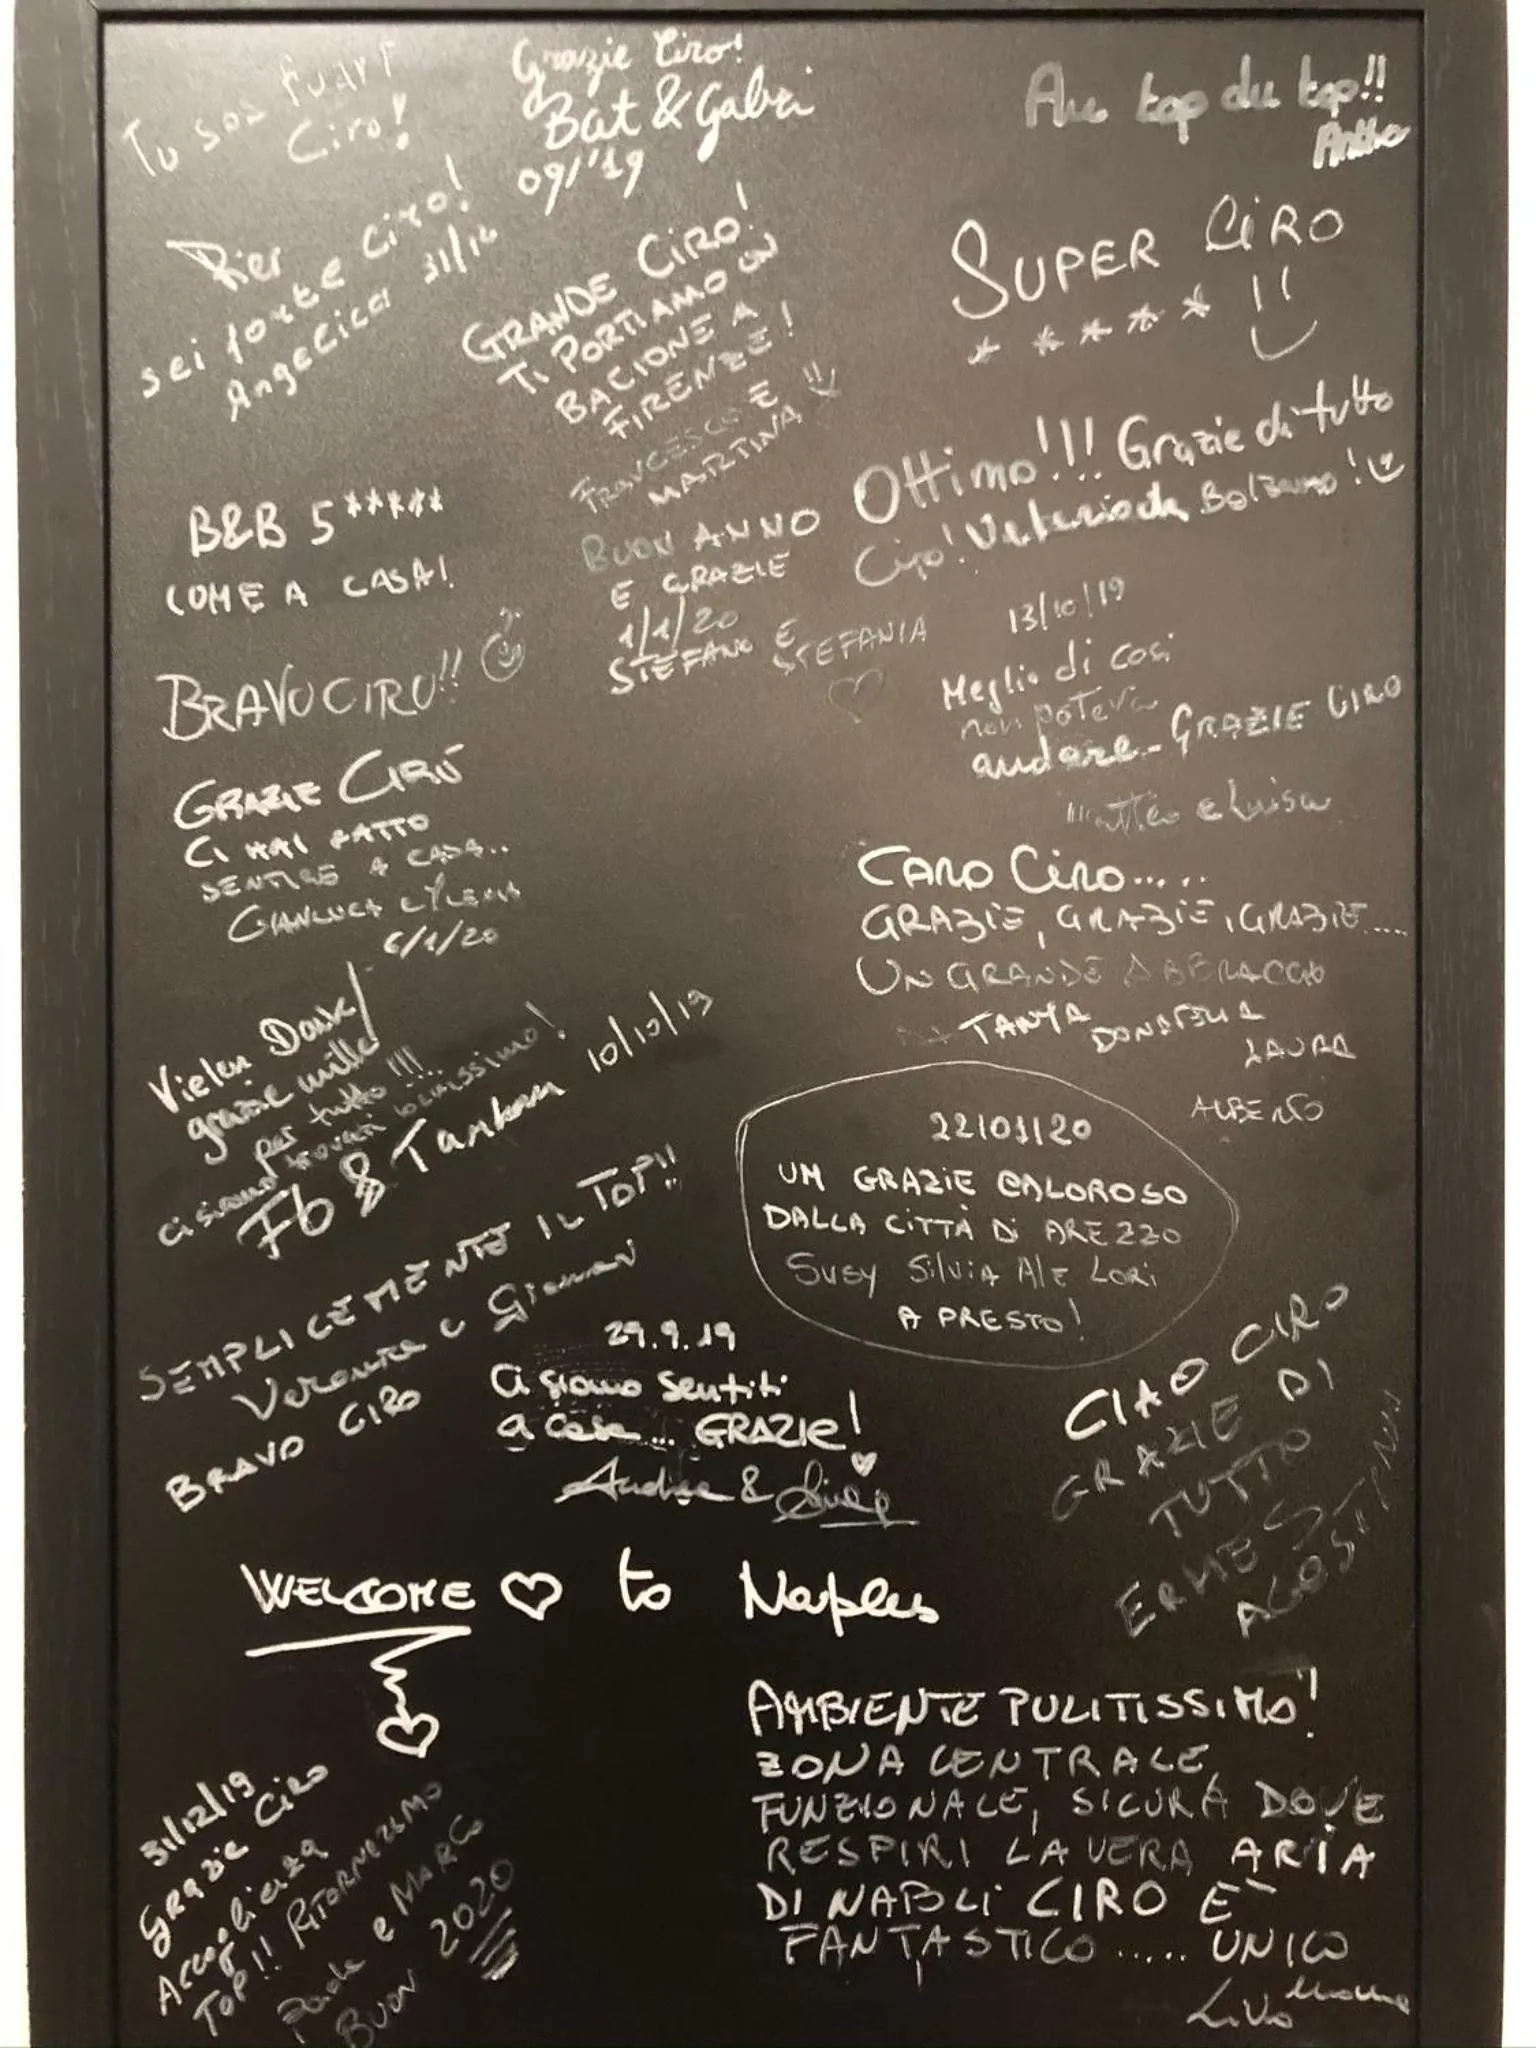 Tu sos fuart
Ciro!
Grazie Ciro!
Bat & Gabri
09/'19
Au top du top!!
Antho
Pier
sei forte Ciro!
Angelica 31/12
GRANDE CIRO!
TI PORTIAMO UN
BACIONE A
FIRENZE!
FRANCESCO E
MARTINA
SUPER CIRO
* * * * * !!
B&B 5*****
COME A CASA!
BUON ANNO
E GRAZIE
1/1/20
STEFANO E
STEFANIA
Ottimo!!! Grazie di tutto
Ciro! Valeria da Bolzano!
13/10/19
BRAVO CIRO!!
Meglio di cosi
non poteva
andare - GRAZIE CIRO
Matteo e Luisa
GRAZIE CIRÙ
CI HAI FATTO
SENTIRE A CASA..
GIANLUCA e YLENIA
6/1/20
CARO CIRO.....
GRAZIE, GRAZIE, GRAZIE.....
UN GRANDE ABBRACCIO
DA TANYA DONATELLA
LAURA
ALBERTO
Vielen Dank!
grazie mille
per tutto !!!..
ci siamo trovati benissimo!
& 10/10/19
22/01/20
UN GRAZIE CALOROSO
DALLA CITTÀ DI AREZZO
SUSY SILVIA ALE LORI
A PRESTO!
SEMPLICEMENTE IL TOP!!
Veronica e Giovanni
BRAVO CIRO
29.9.19
Ci siamo sentiti
a casa... GRAZIE!
Andrea &
CIAO CIRO
GRAZIE DI
TUTTO
ERMES
WELCOME to Naples
AMBIENTE PULITISSIMO!
ZONA CENTRALE,
FUNZIONALE, SICURA DOVE
RESPIRI LA VERA ARIA
DI NAPOLI CIRO È
FANTASTICO ..... UNICO
31/12/19
Grazie Ciro
Accoglienza
TOP!! RITORNEREMO
Paola e MARCO
BUON 2020